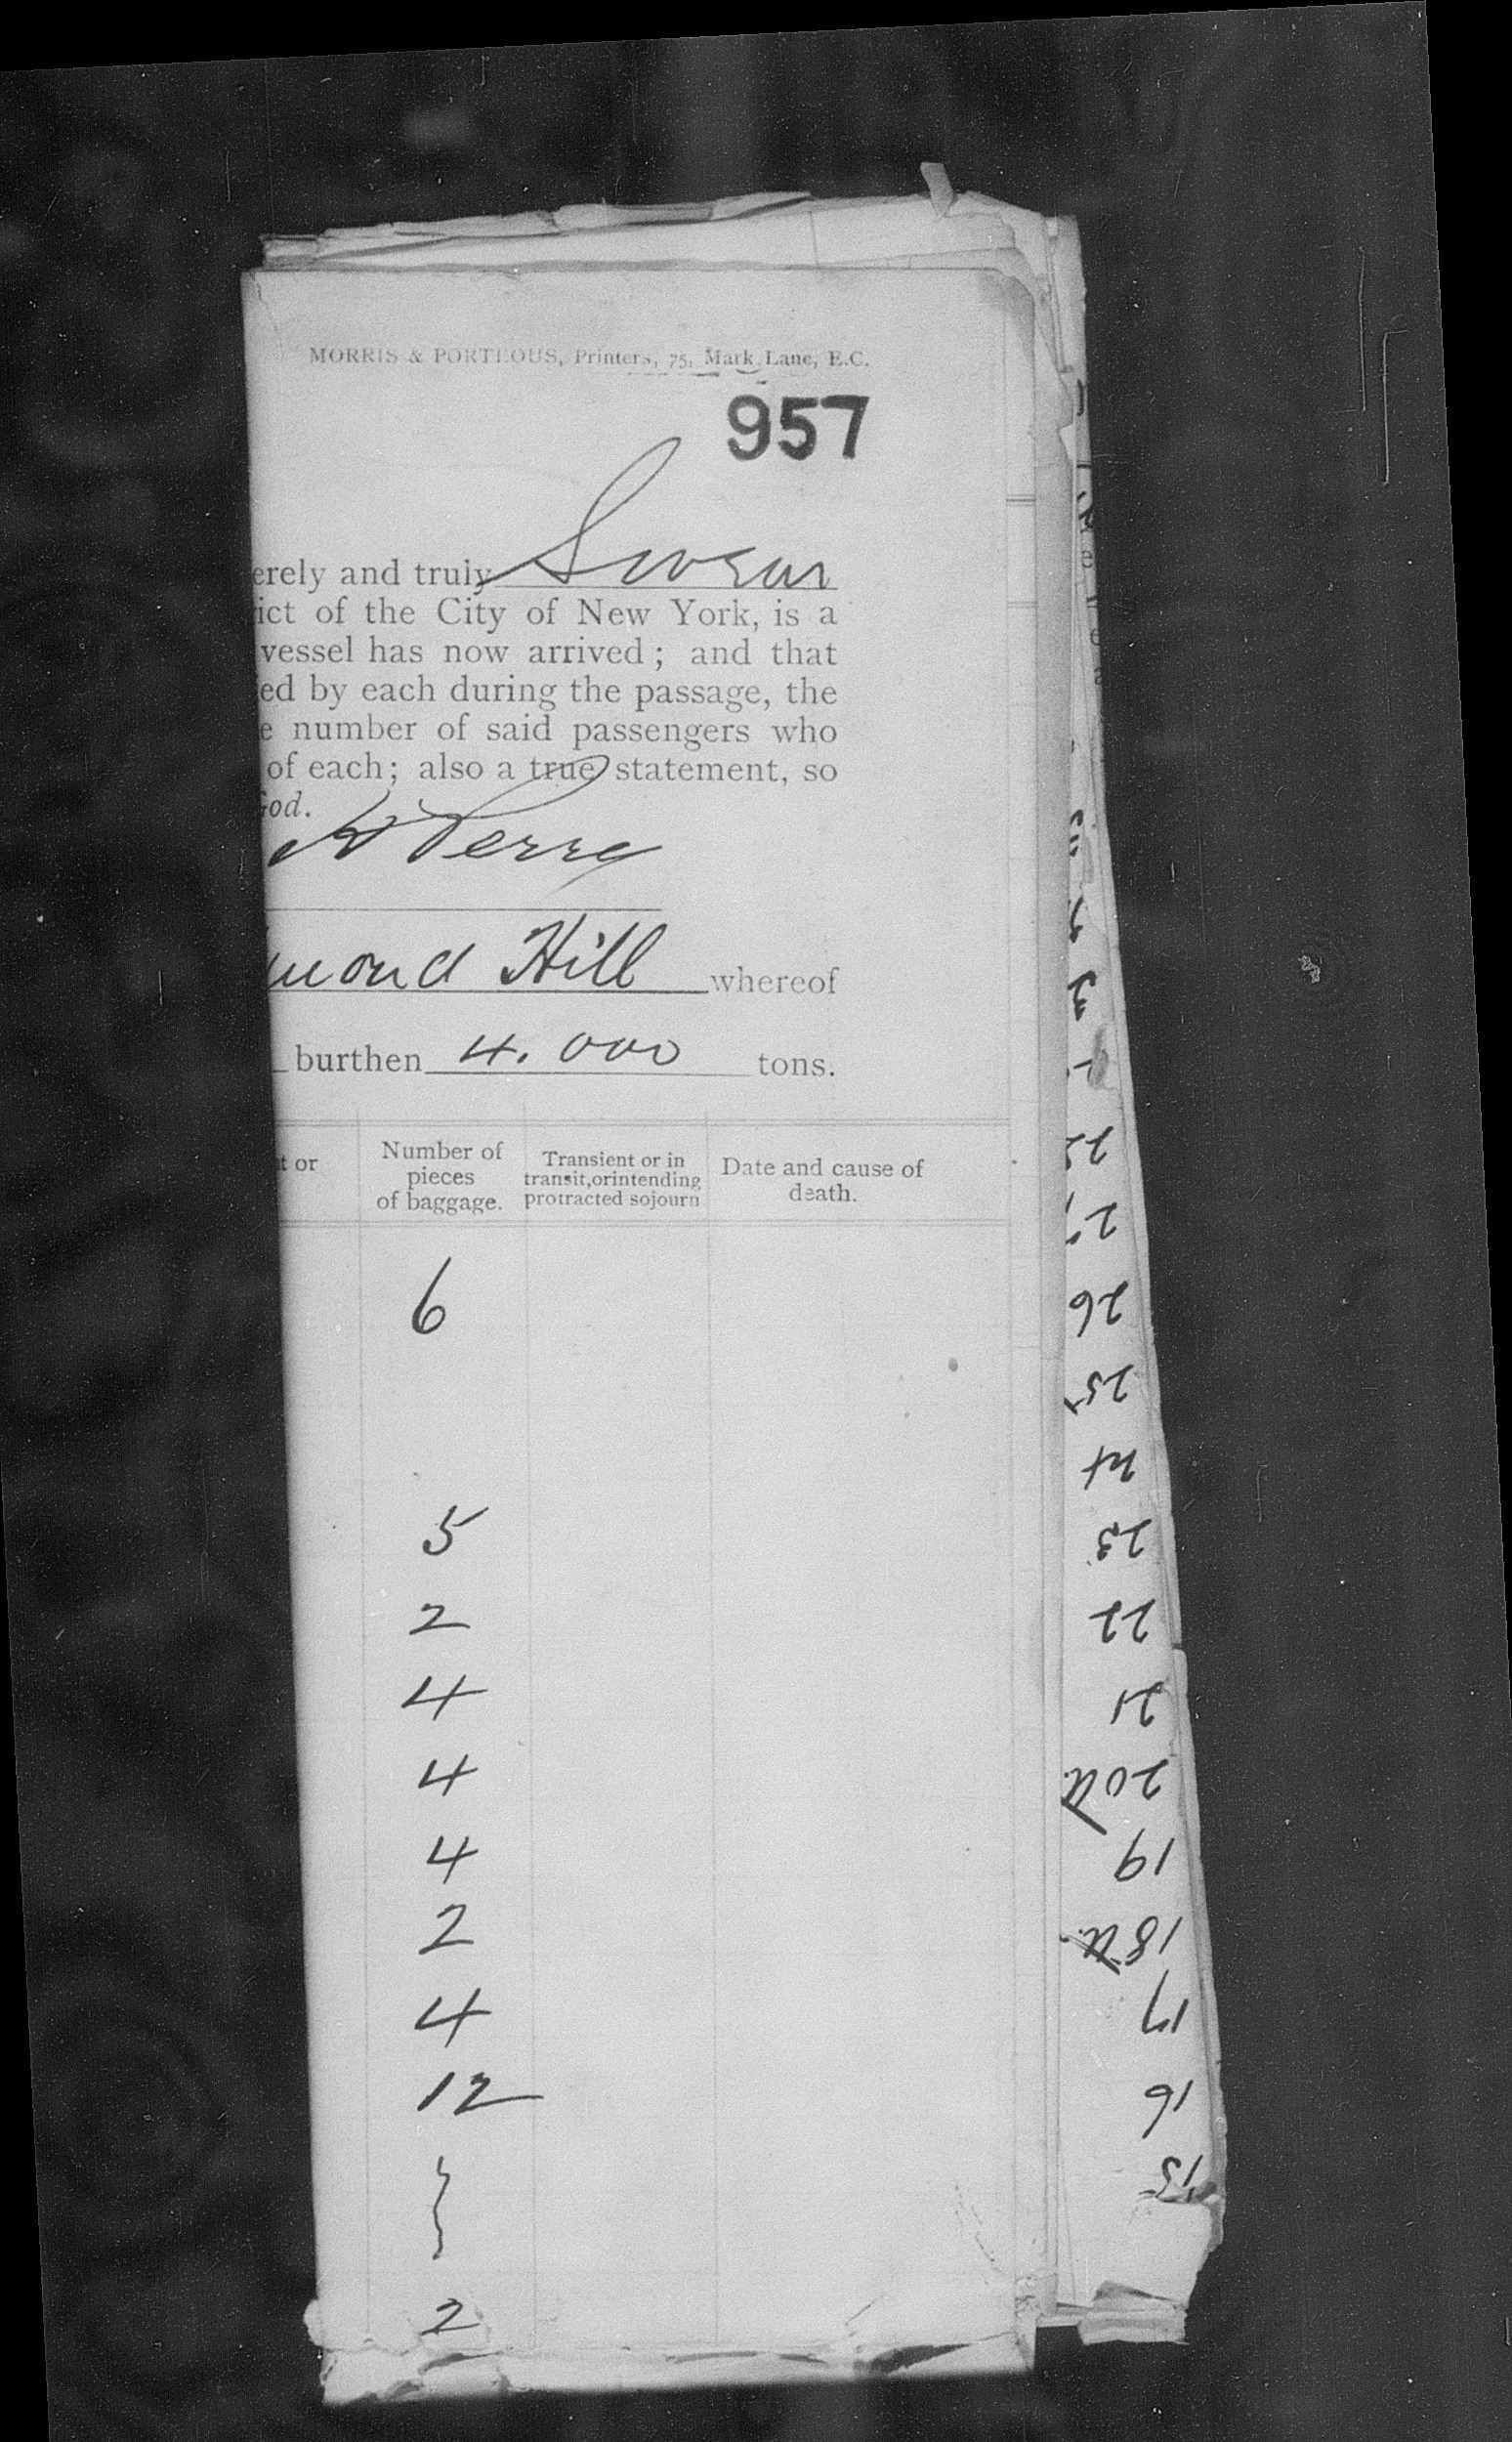 MORRIS & PORTEOUS, Printers, 75, Mark Lane, E.C.
957
erely and truly Swear
ict of the City of New York, is a
vessel has now arrived; and that
ed by each during the passage, the
e number of said passengers who
of each; also a true statement, so
God.
Perry
mond Hill whereof
burthen 4.000 tons.
t or
Number of pieces of baggage.
Transient or in transit, or intending protracted sojourn
Date and cause of death.
6
5
2
4
4
4
2
4
12
2
26
25
24
23
22
21
20
19
18
17
16
15